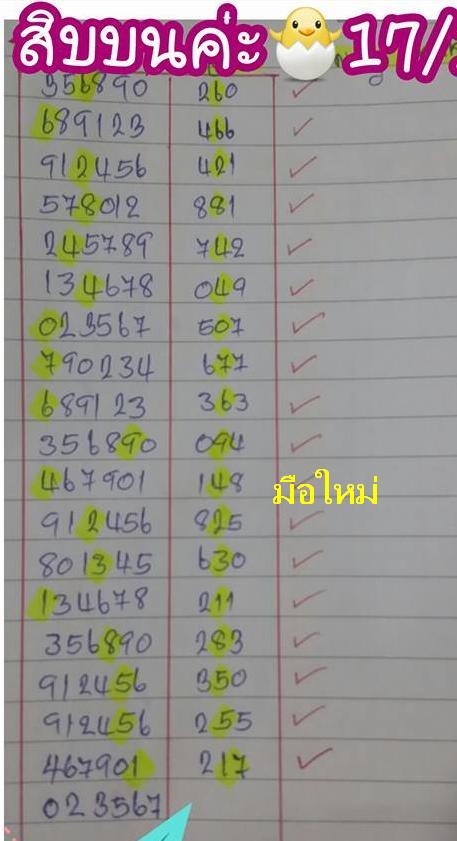 สิบบนค่ะ 17/
356890 260
689123 466
912456 421
578012 881
245789 742
134678 049
023567 507
790234 677
689123 363
356890 094
467901 148
มือใหม่
912456 825
801345 630
134678 211
356890 283
912456 350
912456 255
467901 217
023567